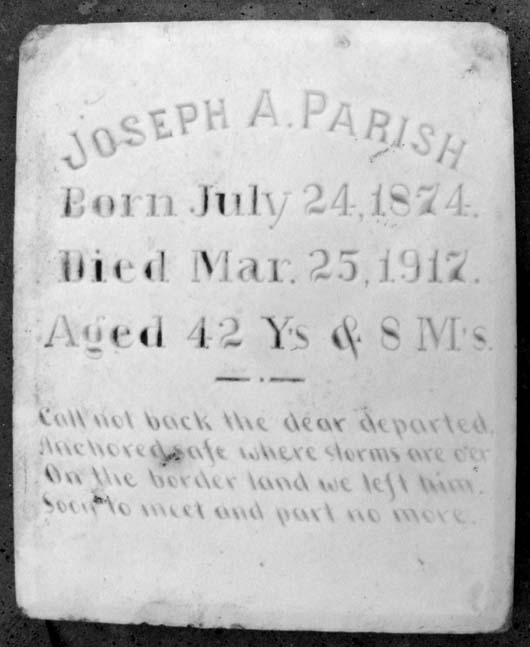 JOSEPH A. PARISH
Born July 24, 1874.
Died Mar. 25, 1917.
Aged 42 Y's & 8 M's.
Call not back the dear departed,
Anchored safe where storms are o'er
On the border land we left him.
Soon to meet and part no more.